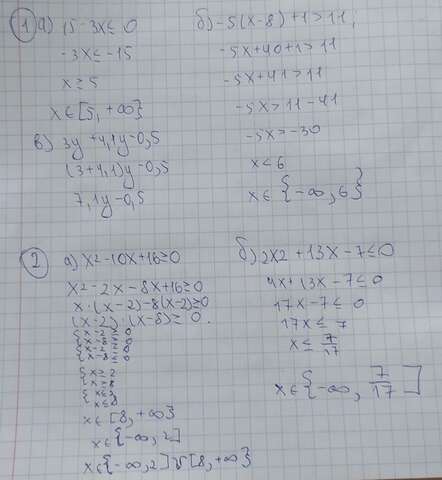 1 а) 15-3x≤0
-3x≤-15
x≥5
x∈[5, +∞}
б) -5(x-8)+1>11,
-5x+40+1>11
-5x+41>11
-5x>11-41
-5x>-30
x<6
x∈{-∞, 6}
в) 3y+4,1y-0,5
(3+4,1)y-0,5
7,1y-0,5
2 а) x²-10x+16≥0
x²-2x-8x+16≥0
x·(x-2)-8(x-2)≥0
(x-2)·(x-8)≥0.
{x-2≥0
x-8≥0
{x-2≤0
x-8≤0
{x≥2
x≥8
{x≤2
x≤8
x∈[8, +∞}
x∈{-∞, 2]
x∈{-∞, 2]∪[8, +∞}
б) 2x2+13x-7≤0
4x+13x-7≤0
17x-7≤0
17x≤7
x≤7/17
x∈{-∞, 7/17]